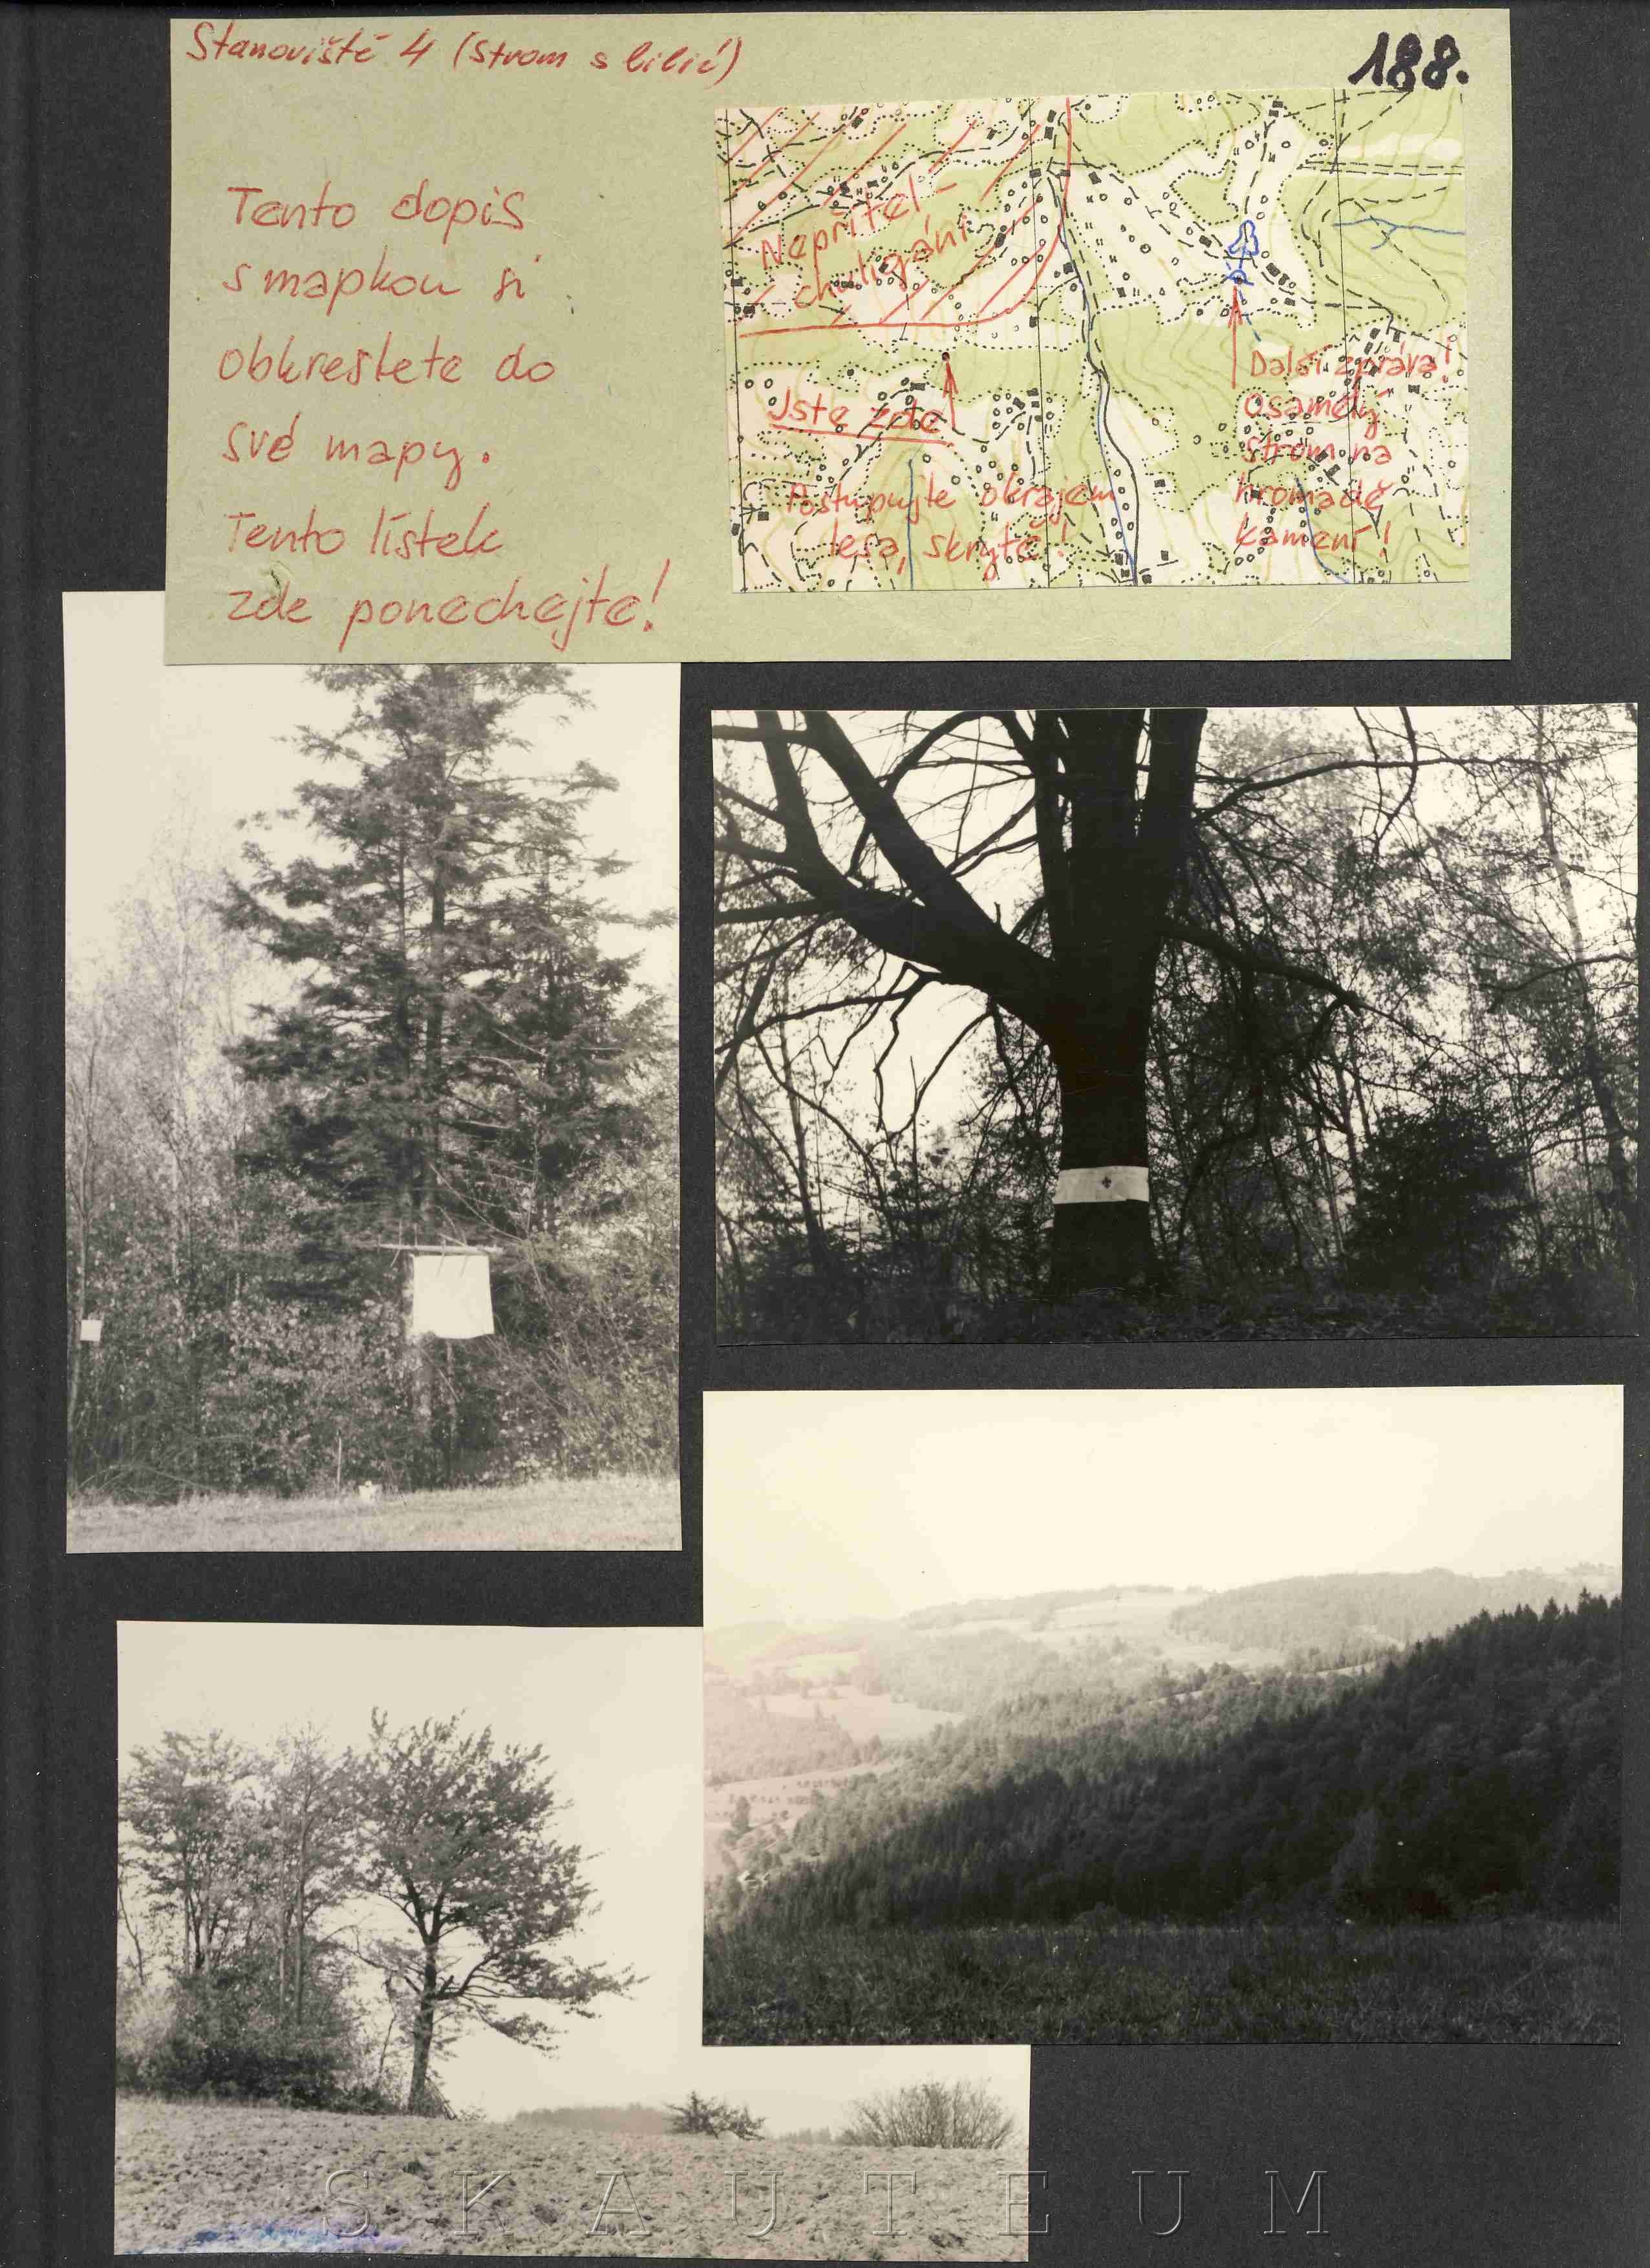 Stanoviště 4 (strom s lilií)
188.
Tento dopis
s mapkou si
obkreslete do
své mapy.
Tento lístek
zde ponechejte!
Nepřítel -
chuligáni
Jste zde
Postupujte okrajem
lesa, skrytě!
Další zpráva!
Osamělý
strom na
hromadě
kamení!
SKAUTEUM